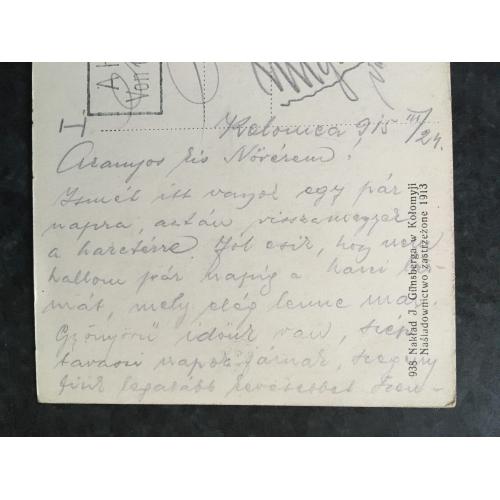 Kolomea, 915 III/24.
Aranyos kis Nővérem!
Ismét itt vagyok egy pár
napra, aztán visszamegyek
a harctérre. Jól esik, hogy nem
hallom pár napig a harci lár-
mát, mely elég lenne már.
Gyönyörű időnk van, szép
tavaszi napok járnak, szegény
fiúk legalább kevesebbet szen-
935 Nakład J. GUnsberga w Kołomyji
Naśladownictwo zastrzeżone 1913